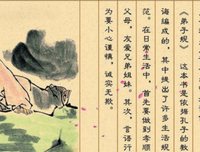 《弟子规》这本书是依孔子的教
诲编成的，其中提出了许多生活规
范。在日常生活中，首先要做到孝顺
父母，友爱兄弟姐妹。其次，言语行
为要小心谨慎，诚实无欺。